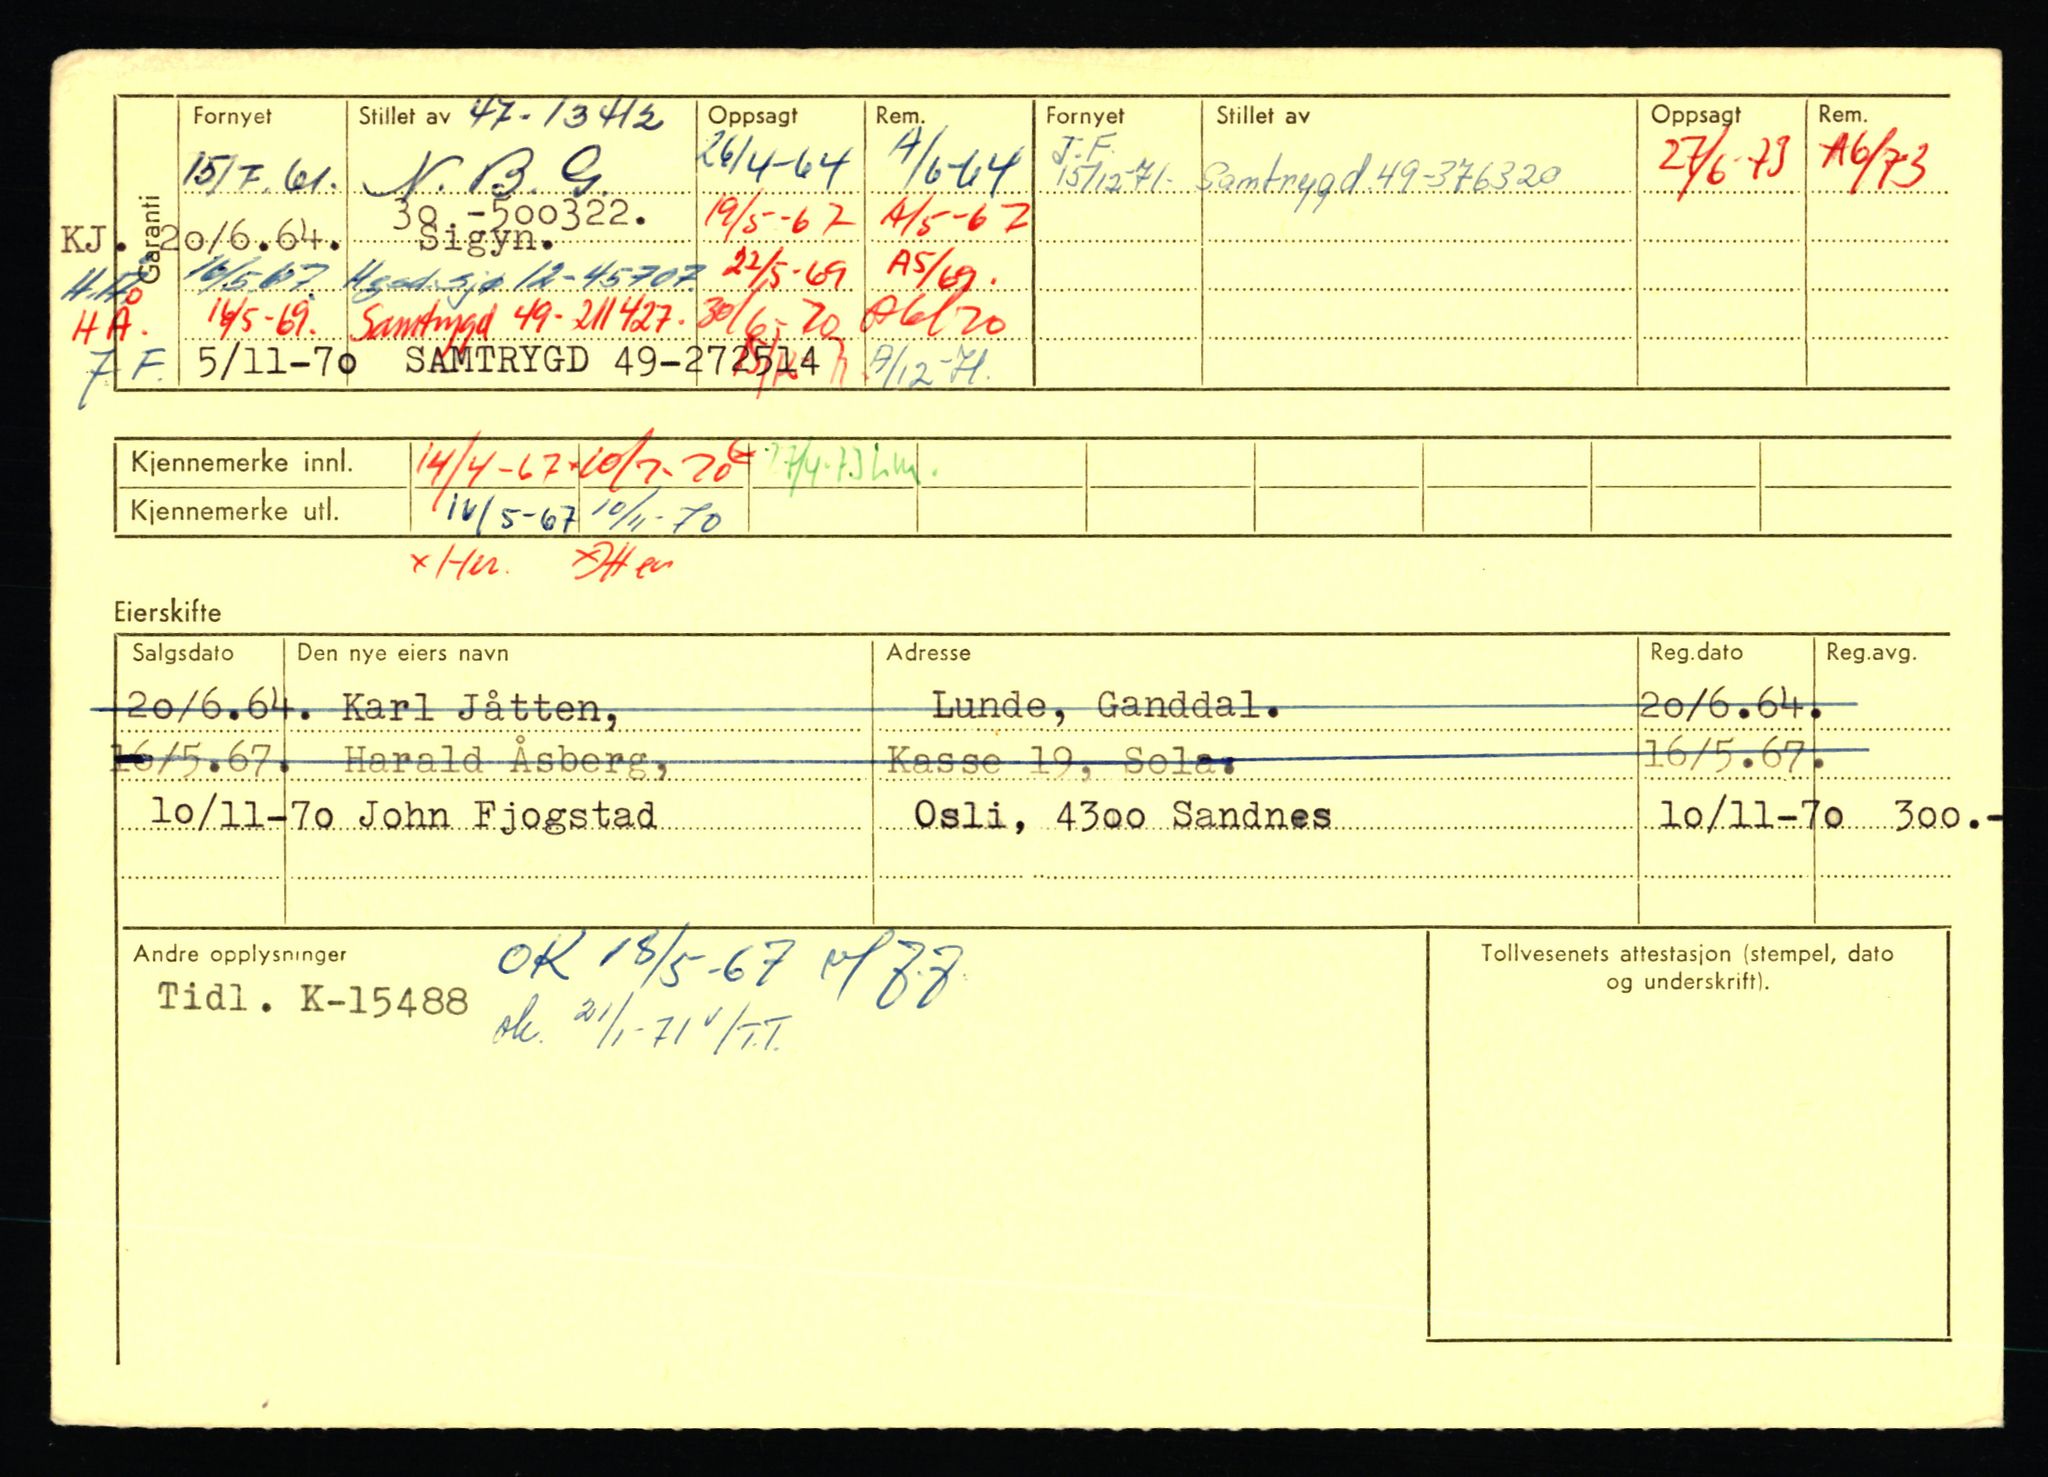 Garanti
Fornyet Stillet av 47-13412 Oppsagt Rem. Fornyet Stillet av Oppsagt Rem.
15/7.61. N.B.G. 26/4-64 A/6-64 J.F. 15/12-71. Samtrygd 49-376320 27/6-73 A6/73
30.-500322. 19/5-67 A/5-67
KJ. 20/6.64. Sigyn.
H.Å. 16/5-67. 12-45707. 22/5-69 A5/69.
H Å. 16/5-69. Samtrygd 49-211427. 30/6-70 A6/70
J F. 5/11-70 SAMTRYGD 49-272514 A/12-71.
Kjennemerke innl. 14/4-67 × 10/7-70 27/4-73
Kjennemerke utl. 16/5-67 10/11-70
× Her.
Eierskifte
Salgsdato Den nye eiers navn Adresse Reg.dato Reg.avg.
20/6.64. Karl Jåtten, Lunde, Ganddal. 20/6.64.
16/5.67. Harald Åsberg, Kasse 19, Sola. 16/5.67.
10/11-70 John Fjogstad Osli, 4300 Sandnes 10/11-70 300.-
Andre opplysninger OK 18/5-67
Tidl. K-15488
ok. 21/1-71 v/T.T.
Tollvesenets attestasjon (stempel, dato
og underskrift).